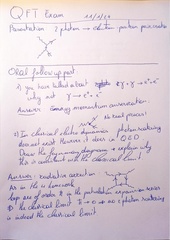 QFT Exam 11/2/14
Presentation 2 photon → electron positron pair creation
Oral follow up part
1) you have talked about γ + γ → e⁺ e⁻
why not γ → e⁺ e⁻
Answer: Energy momentum conservation.
No real process!
2) In classical electro dynamics photon scattering
does not exist. However it does in QED
Draw the Feynman diagrams & explain why
this is consistent with the classical limit
Answer: radiative correction
As in the homework
loop are of order ħ in the perturbation expansion series
the classical limit ħ → 0 no photon scattering
is indeed the classical limit